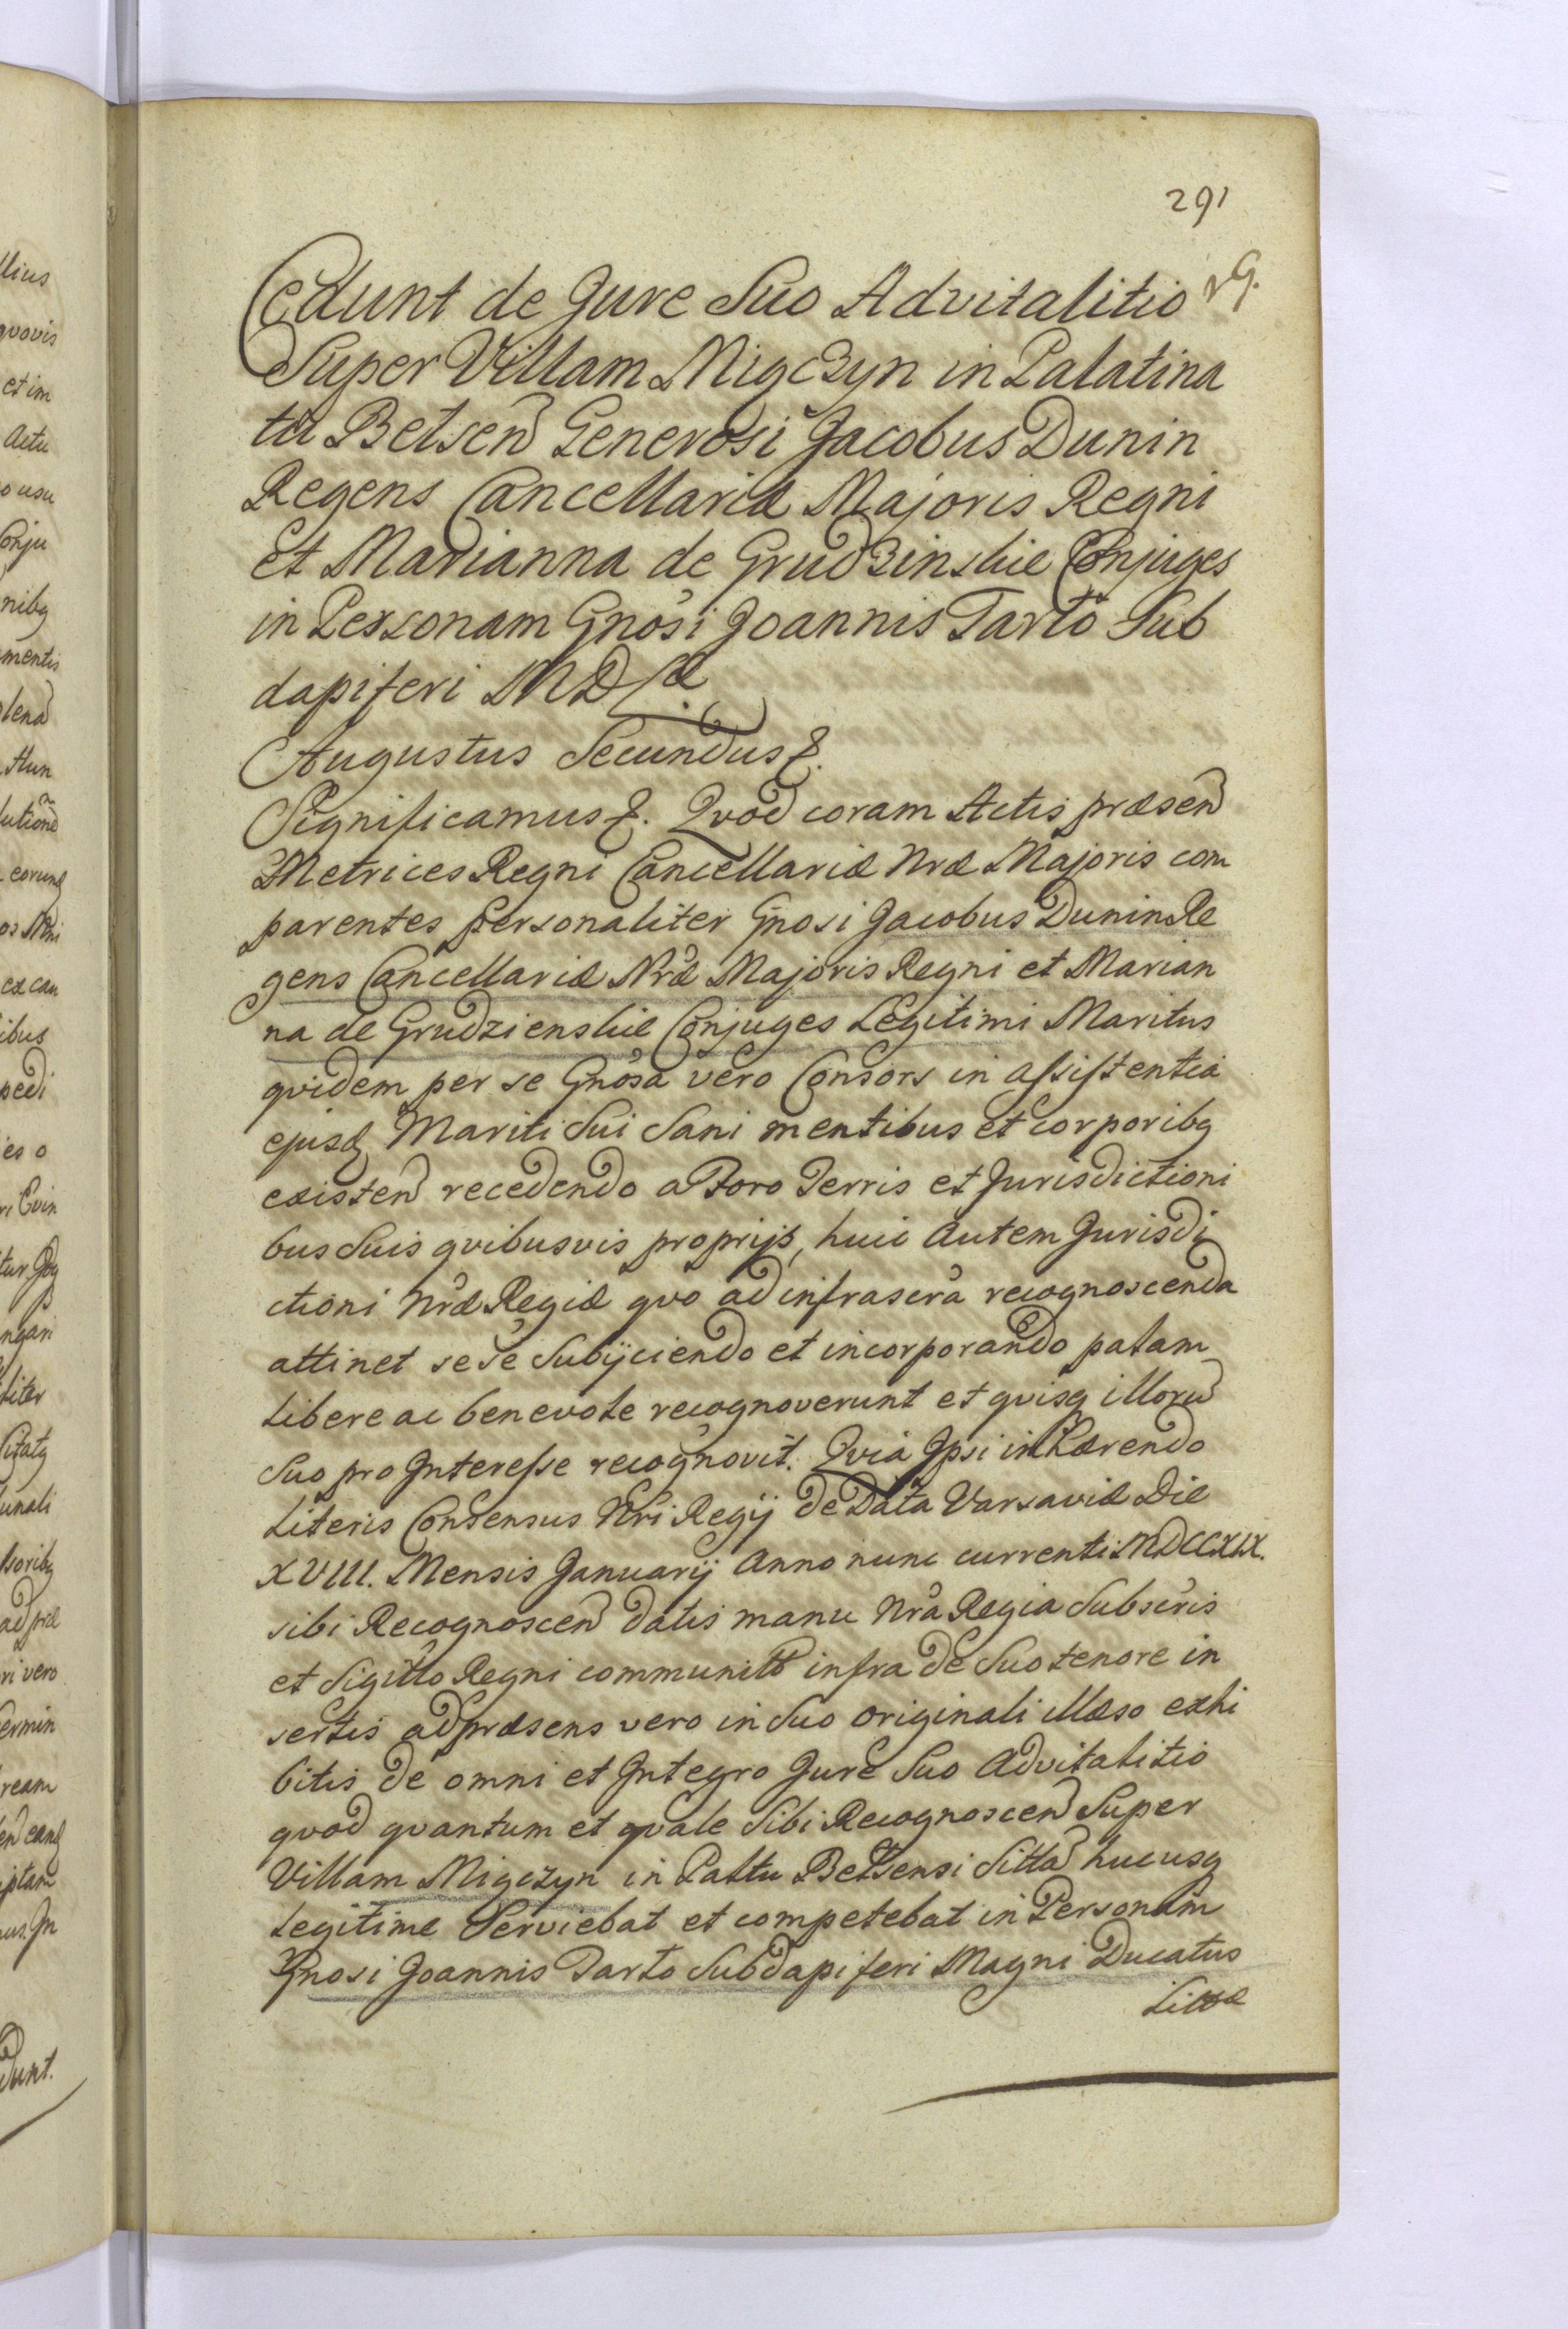 291
Cedunt de Jure Suo Advitalitio
Super Villam Migczyn in Palatina
tu Belsen Generosi Jacobus Dunin
Regens Cancellariæ Majoris Regni
et Marianna de Grudzinskie Conjuges
in Personam Gnosi Joannis Tarło Sub
dapiferi MDL
Augustus Secundus &.
Significamus &. Qvod coram Actis præsen
Metrices Regni Cancellariæ Nræ Majoris com
parentes personaliter Gnosi Jacobus Dunin Re
gens Cancellariæ Nræ Majoris Regni et Marian
na de Grudzienskie Conjuges Legitimi Maritus
qvidem per se Gnosa vero Consors in assistentia
ejusq Mariti Sui Sani mentibus et corporibq
existen recedendo a Foro Terris et Jurisdictioni
bus Suis qvibusvis proprijs, huic autem Jurisdi
ctioni Nræ Regiæ qvo ad infrascra recognoscenda
attinet sese Subijciendo et incorporando palam
libere ac benevole recognoverunt et qvisq illoru
Suo pro Interesse recognovit. Qvia Ipsi inhærendo
Literis Consensus Nri Regij de Data Varsaviæ Die
XVIII. Mensis Januarij Anno nunc currenti MDCCXIX.
sibi Recognoscen datis manu Nra Regia Subscris
et Sigillo Regni communitt infra de Suo tenore in
sertis ad præsens vero in Suo originali illæso exhi
bitis de omni et Integro Jure Suo Advitalitio
qvod qvantum et qvale Sibi Recognoscen Super
Villam Migczyn in Palttu Belzensi Sitta hucusq
legitime Serviebat et competebat in Personam
Gnosi Joannis Tarło Subdapiferi Magni Ducatus